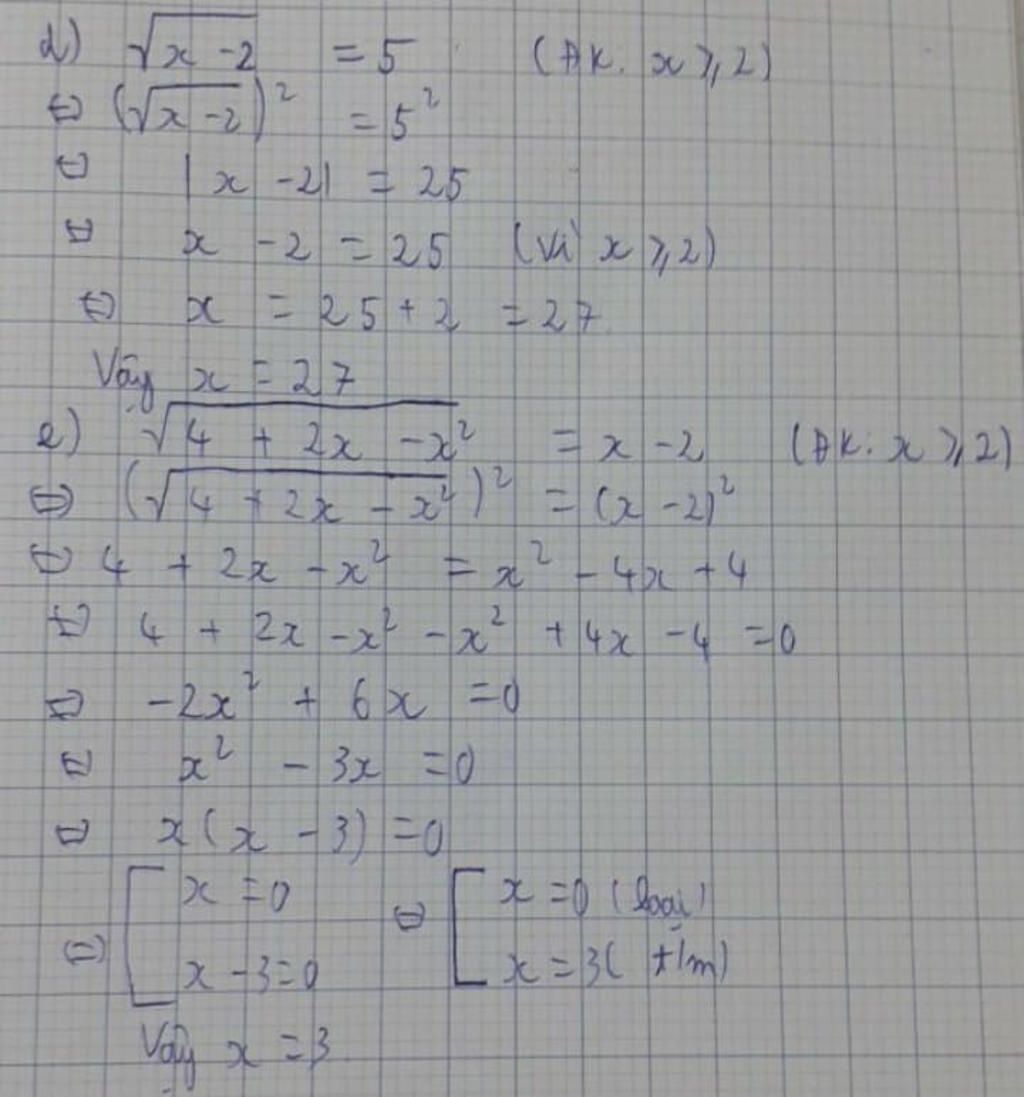 d) √(x - 2) = 5 (ĐK: x ≥ 2)
⇔ (√(x - 2))² = 5²
⇔ |x - 2| = 25
⇔ x - 2 = 25 (vì x ≥ 2)
⇔ x = 25 + 2 = 27
Vậy x = 27
e) √(4 + 2x - x²) = x - 2 (ĐK: x ≥ 2)
⇔ (√(4 + 2x - x²))² = (x - 2)²
⇔ 4 + 2x - x² = x² - 4x + 4
⇔ 4 + 2x - x² - x² + 4x - 4 = 0
⇔ -2x² + 6x = 0
⇔ x² - 3x = 0
⇔ x(x - 3) = 0
⇔ [ x = 0 ⇔ [ x = 0 (loại)
x - 3 = 0 x = 3 (t/m)
Vậy x = 3